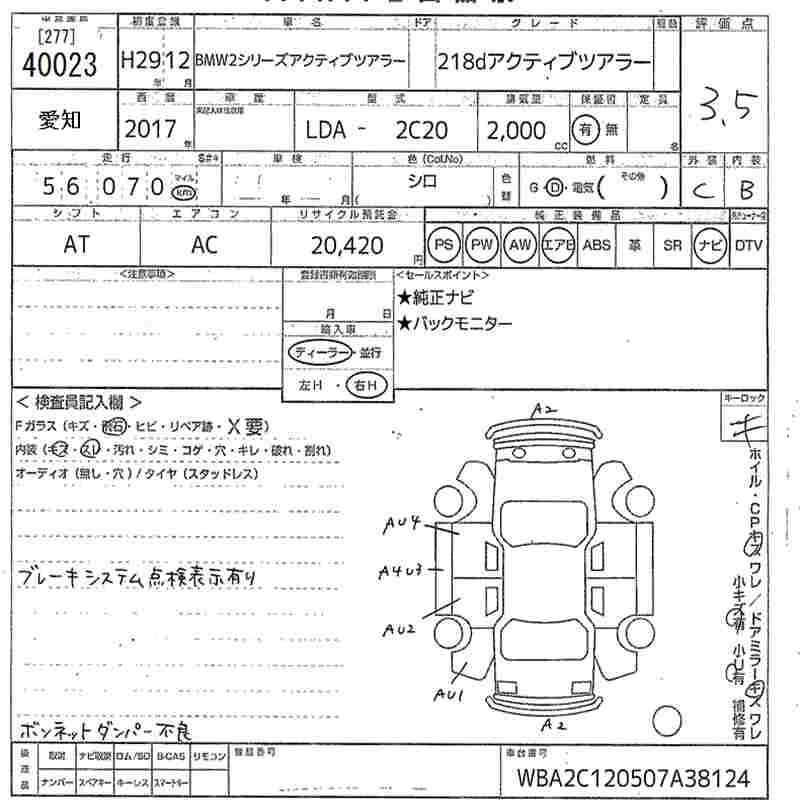 [277]
40023
初度登録
H29 12
年 月
車名
BMW2シリーズアクティブツアラー
ドア
グレード
218dアクティブツアラー
評価点
3.5
愛知
西暦
2017
年
車歴
型式
LDA - 2C20
排気量
2,000
CC
保証書
有 無
定員
名
走行
56 070
マイル
km
車検
年 月
色(Col.No)
シロ
色替
燃料
G・D・電気( その他 )
外装
C
内装
B
シフト
AT
エアコン
AC
リサイクル預託金
20,420
円
純正装備品
PS PW AW エアB ABS 革 SR ナビ DTV
<注意事項>
月 日
輸入車
ディーラー・並行
左H・右H
<セールスポイント>
★純正ナビ
★バックモニター
<検査員記入欄>
Fガラス(キズ・飛石・ヒビ・リペア跡・X要)
内装(キズ・スレ・汚れ・シミ・コゲ・穴・キレ・破れ・割れ)
オーディオ(無し・穴)/タイヤ(スタッドレス)
ブレーキシステム点検表示有り
ボンネットダンパー不良
A2
AU4
A4U3
AU2
AU1
A2
キーロック
キ
ホイル・CPキズワレ/ドアミラーキズワレ
小キズ有 小U有 補修有
取説 ナビ取説 ロム/SD B-CAS リモコン
ナンバー スペアキー キーレス スマートキー
登録番号
車台番号
WBA2C120507A38124